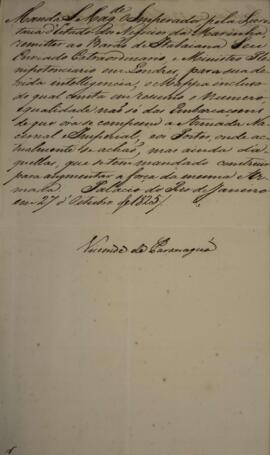 Manda S. Mag.e o Imperador pela Secre
taria d'Estado dos Negocios da Marinha
remetter ao Barão de Itabaiana Seu
Enviado Extraordinario e Ministro Ple
nipotenciario em Londres, para sua de
vida intelligencia, o Mappa incluso
do qual consta em resumo o Numero e
qualidade não só das Embarcacoens
de que ora se compoem a Armada Na
cional e Imperial, e os Portos, onde ac
tualmente se achão, mas ainda d'a
quellas, que se tem mandado construir
para augmentar a força da mesma Ar
mada. Palacio do Rio de Janeiro
em 27 d'Outubro de 1825
Visconde de Paranaguá